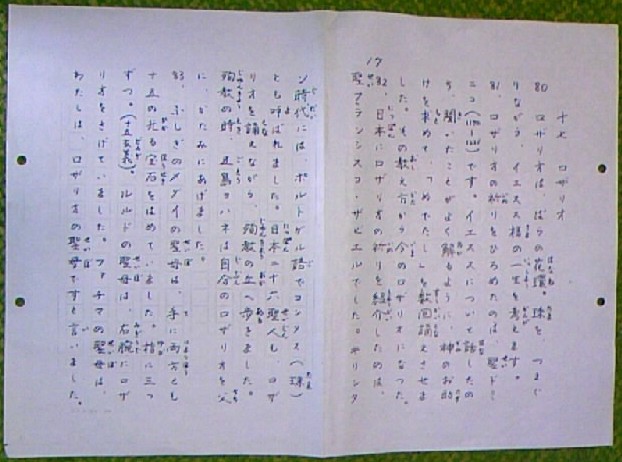 十七 ロザリオ
80 ロザリオは、ばらの花環。珠を、つまぐ
りながら、イエスス様の一生を考えます。
81、ロザリオの祈りをひろめたのは、聖ドミ
ニコ です。イエススについて話したの
を、聞いたことがよく解るように、神のお助
けを求めて、「めでたし」を数回誦えさせま
した。その教え方から今のロザリオになった。
82、日本にロザリオの祈りを紹介したのは、
聖フランシスコ・ザビエルでした。キリシタ
17
ン時代には、ポルトガル語でコンタス(珠)
とも呼ばれました。日本二十六聖人も、ロザ
リオを誦えながら、殉教の丘へ歩きました。
殉教の時、五島ヨハネは自分のロザリオを父
に、かたみにあげました。
83、ふしぎのメダイの聖母は、手に両方とも
十五の光る宝石をはめていました。指に三つ
ずつ。(十五玄義)。ルルドの聖母は、右腕にロザ
リオをさげていました。ファチマの聖母は、
わたしは、ロザリオの聖母ですと言いました。